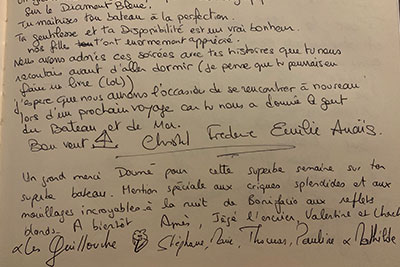 sur le Diamant Bleue.
Tu maitrises ton bateau à la perfection.
Ta gentillesse et ta disponibilité est un vrai bonheur.
nos fille t'ont enormement apprécié.
Nous avons adorés ces soirées avec tes histoires que tu nous
racontais avant d'aller dormir (je pense que tu pourrais en
faire un livre (lol))
j'espere que nous aurons l'occasion de se rencontrer à nouveau
lors d'un prochain voyage car tu nous a donné le goût
du Bateau et de Mer.
Bon vent Christel Frederic Emilie Anaïs.
Un grand merci pour cette superbe semaine sur ton
superbe bateau. Mention spéciale aux criques splendides et aux
mouillages incroyables à la nuit de Bonifacio aux reflets
dorés. A bientôt Agnès, l'écuier Valentine et
Les Guillouche Stéphane, Marie, Thomas, Pauline & Mathilde